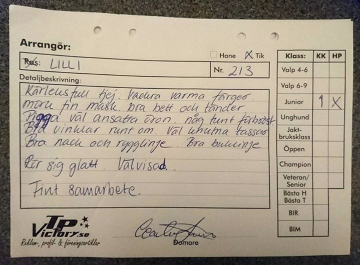 Arrangör:
Ras: LILLI
Hane X Tik
Nr. 213
Detaljbeskrivning:
Kärleksfull tjej. Vackra varma färger
mörk fin mask. Bra bett och tänder
Pigga väl ansatta öron. nog tunt förbröst
Bra vinklar runt om. Väl knutna tassar
Bra nack och rygglinje. Bra buklinje
Rör sig glatt. Välvisad.
Fint samarbete.
Klass: KK HP
Valp 4-6
Valp 6-9
Junior 1 X
Unghund
Jakt-
bruksklass
Öppen
Champion
Veteran/
Senior
Bästa H
Bästa T
BIR
BIM
TP
Victory.se
Reklam, profil- & föreningsartiklar
Domare